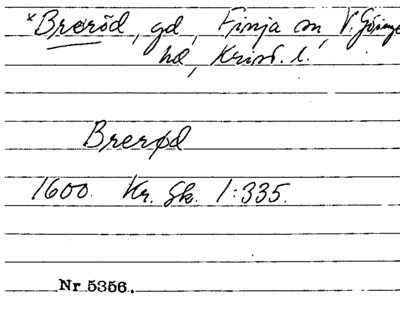 *Breröd, gd, Finja sn, V. Göinge
hd, Krist. l.
Brerød
1600. Kr. Sk. 1:335.
Nr 5356.